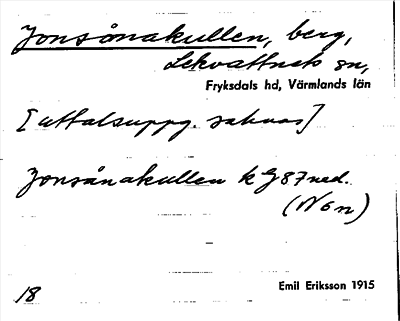 Jonsånakullen, berg,
Lekvattnets sn,
Fryksdals hd, Värmlands län
[uttalsuppg. saknas]
Jonsånakullen k G 87 ned.
(N ö n)
18
Emil Eriksson 1915